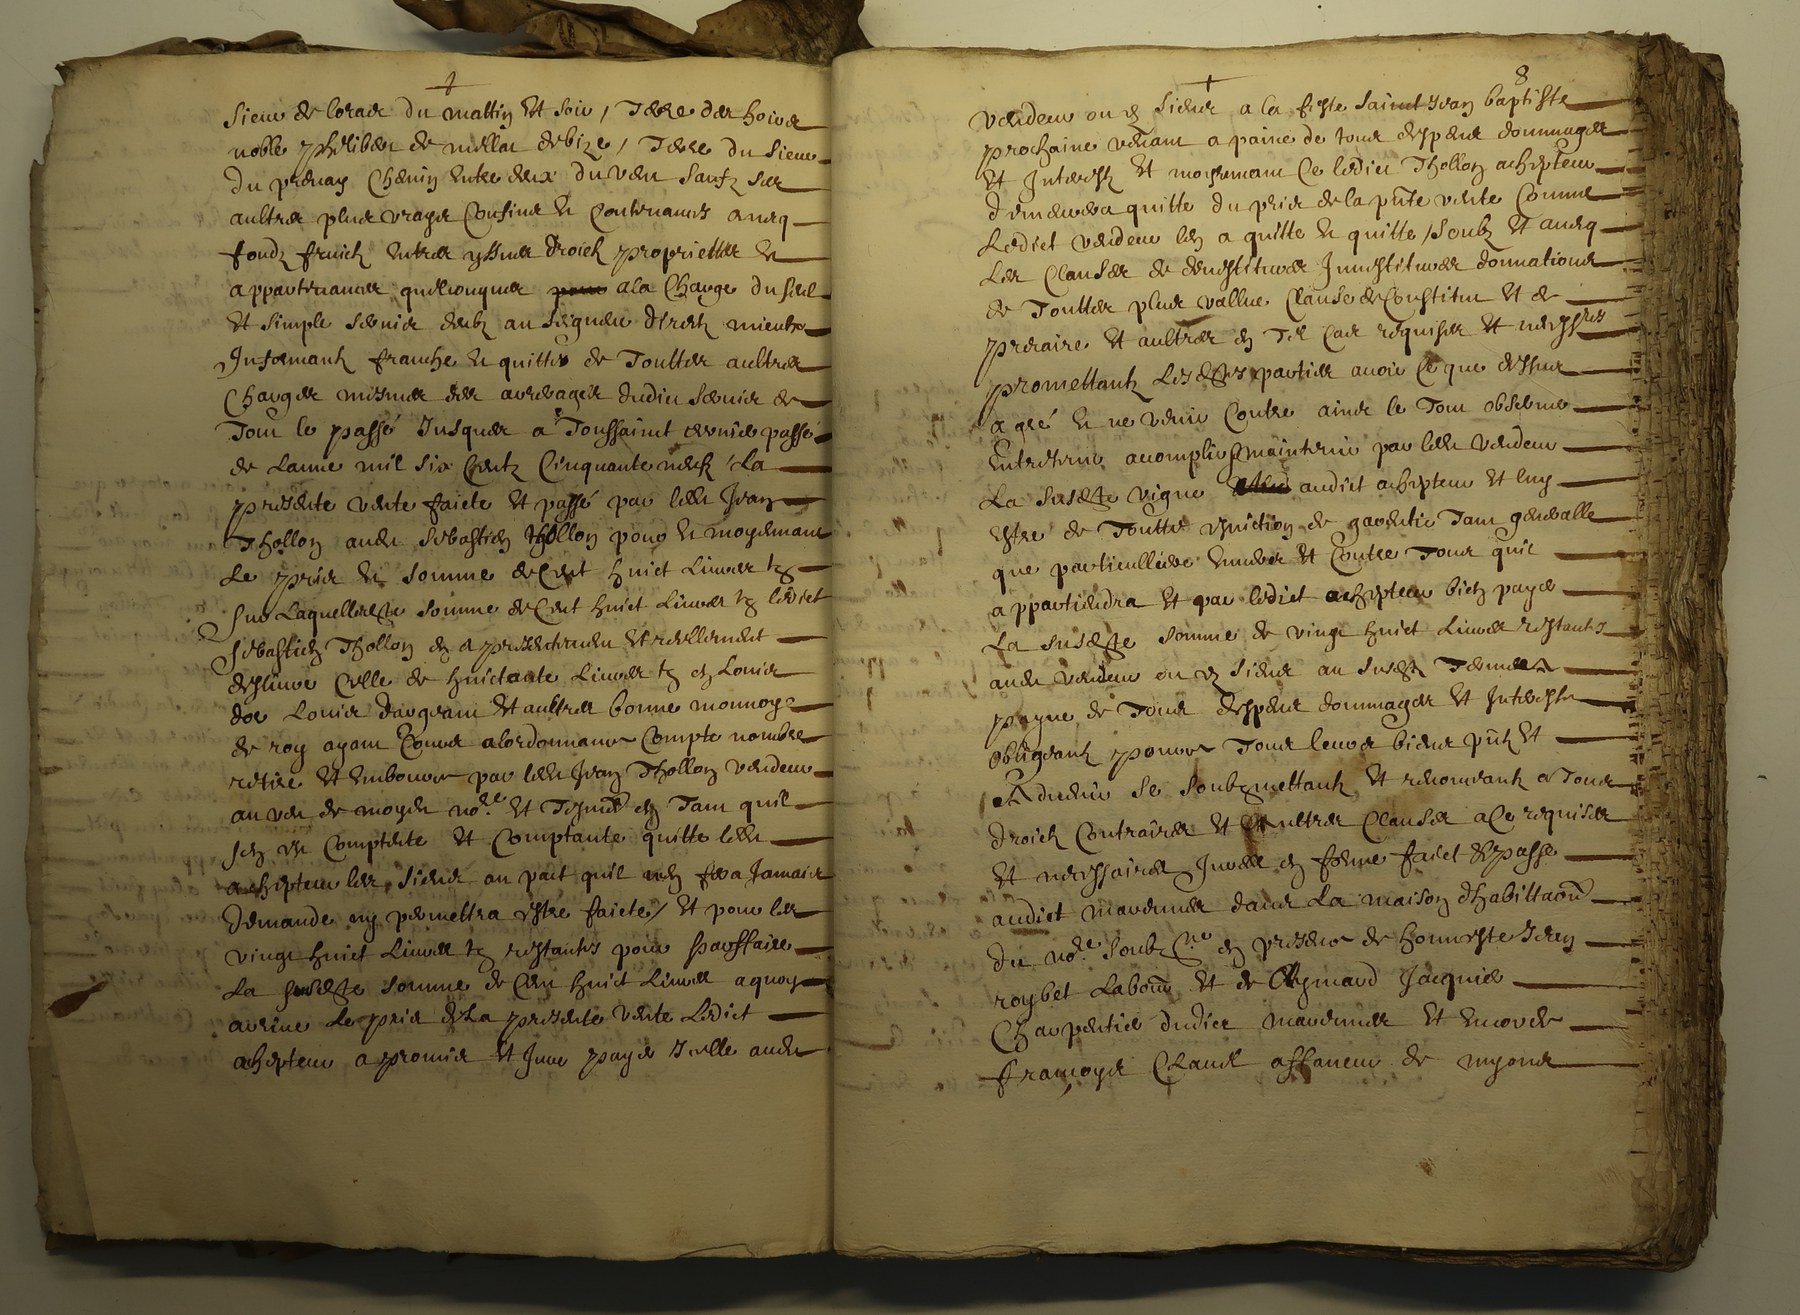 Sieur de lorar du mattin Et soir / Terre des hoirs
noble philibert de millac debize / Terre du Sieur
du prenay Chemin entre deux du vent Saufz ses
aultres plus vrayes Confins Et Contenances avecq
fondz fruictz entrees yssues droictz proprietter Et
appartenances quelconques a la Charge du seul
Et simple servis deubz au seigneur direct mieulx
Informantz franche Et quitte de Touttes aultres
Charges mesmes des arrerages dudict servis de
Tout le passé Jusques a Toussainct dernier passé
de Lanne mil six Centz Cinquante neufz / La
presente vente faicte Et passé par ledict Jean
Thollon audict Sebastien thollon pour Et moyenant
Le pris Et somme de Cent huict Livres tz
sur Laquelle dicte somme de Cent huict Livres tz ledict
Sebastien Thollon en a presentement Et reellement
deslivré Celle de huictante Livres tz en Louis
dor Louis dargent Et aultres bonne monnoye
de roy ayant Cours a lordonnance Compte nombre
retire Et embource par ledict Jean Thollon vendeur
au veu de moyd no.re Et Tesmoins en Tant quil
sen est Compte Et Comptante quitte ledict
achepteur les siens au pact quil nen fera Jamais
demande ny permettra estre faicte / Et pour les
vingt huict Livres tz restantes pour parffaire
La susdicte somme de Cent huict Livres a quoy
arrive Le pris de La presente vente Ledict
achepteur a promis Et Jure payer Icelle audict
8
vendeur ou es siens a la feste sainct Jean baptiste
prochaine venant a paine de tous despens dommages
Et Interestz Et moyenant Ce ledict Thollon achepteur
demeurera quitte du pris de la pnte vente Comme
Ledict vendeur len a quitte Et quitte / soubz Et avecq
Les Clauses de devestitures Investitures donnations
de Touttes plus vallue Clause de Constitut Et de
precaire Et aultres en Tel Cas requises Et necessres
promettantz Lesdictes parties avoir Ce que dessus
a gré Et ne venir Contre ains le Tout observer
Entretenir accomplir maintenir par ledict vendeur
La susdicte vigne audict achepteur Et luy
Estre de Toutte eviction de garentie Tant generalle
que particulliere envers Et Contre Tous quil
appartiendra Et par ledict achepteur bien payer
La susdicte somme de vingt huict Livres restantes
audict vendeur ou es siens au susdict Termes A
payne de Tous despens dommages Et Interestz
obligeantz pource Tous leurs biens pntz Et
Advenir se soubzmettantz Et renonceantz a Tous
droictz Contraires Et aultres Clauses a Ce requises
Et necessaires Jurees en forme faict Et passe
audict marennes dans La maison dhabittaon
du no.re soubz.ne en presence de honneste Jean
roybet Labour Et de Aymard Jacquier
Charpentier dudict marennes Et encores
francoys Claude affaneur de myons